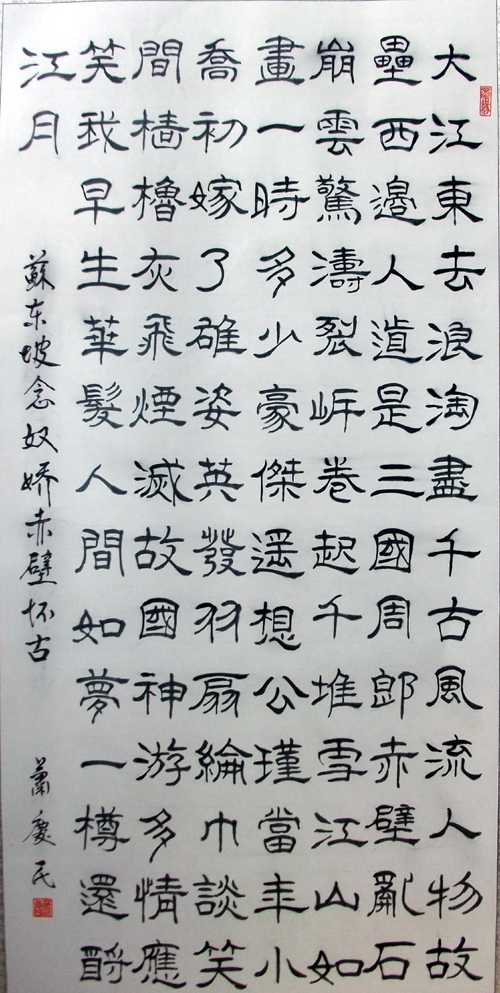 大江東去浪淘盡千古風流人物故
壘西邊人道是三國周郎赤壁亂石
崩雲驚濤裂岸卷起千堆雪江山如
畫一時多少豪傑遥想公瑾當年小
喬初嫁了雄姿英發羽扇綸巾談笑
間檣櫓灰飛煙滅故國神游多情應
笑我早生華髮人間如夢一樽還酹
江月
蘇东坡念奴娇赤壁怀古
蕭慶民